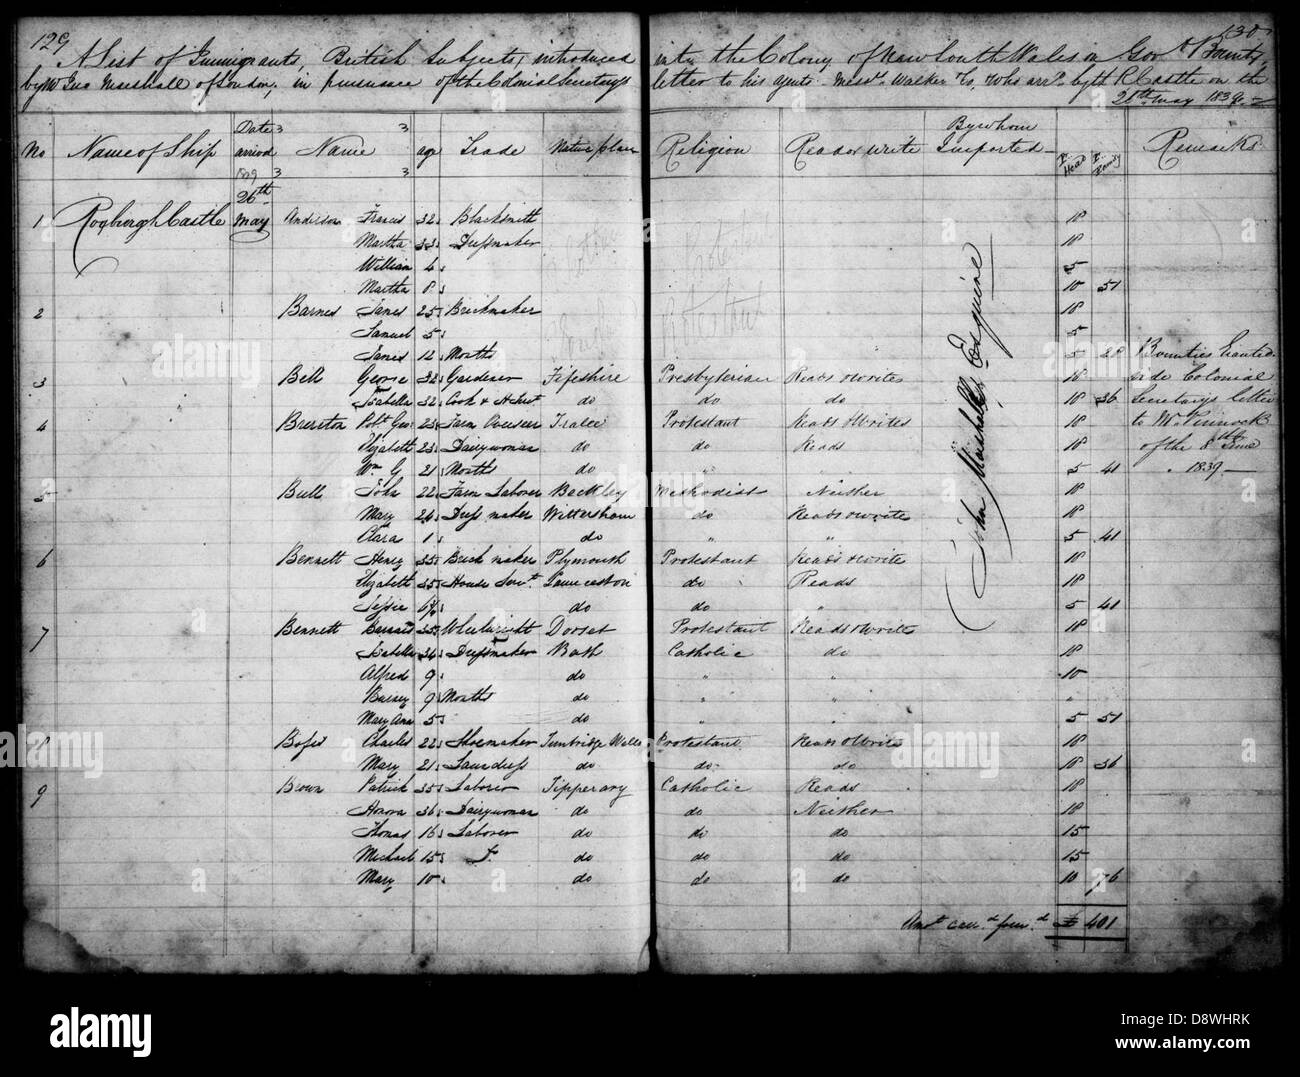 129
130
A List of Immigrants, British Subjects, introduced into the Colony of New South Wales on Govt Bounty,
by Mr Jno Marshall of London, in pursuance of the Colonial Secretary's letter to his agents Messrs Walker & Co, who arrd by the R Castle on the
26th May 1839
No Name of Ship Date arrived Name age Trade Native place Religion Read or write By whom Imported Pr Head Pr Family Remarks
1 Roxburgh Castle 26th May Anderson Francis 32 Blacksmith 18
Martha 33 Dressmaker 18
William 4 5
Martha 8 10 51
2 Barnes James 25 Brickmaker 18
Samuel 5 5
James 12 Months 5 28
3 Bell George 32 Gardener Fifeshire Presbyterian Reads & Writes 18
Isabella 32 Cook & H Servt do do do 18 36
4 Brereton Robt Geo 23 Farm Overseer Tralee Protestant Reads & Writes 18
Elizabeth 23 Dairywoman do do Reads 18
Wm G 21 Months do " " 5 41
5 Bull John 22 Farm Laborer Beckley Methodist Neither 18
Mary 24 Dress maker Wittersham do Reads & write 18
Clara 1 do " " 5 41
6 Bennett Henry 35 Brick maker Plymouth Protestant Reads & write 18
Elizabeth 35 House Servt Launceston do Reads 18
Jessie do do " 5 41
7 Bennett Barnard 35 Wheelwright Dorset Protestant Reads & Write 18
Isabella 34 Dressmaker Bath Catholic do 18
Alfred 9 do " " 10
Barney 9 Months do " "
Mary Ann 5 do " " 5 51
8 Charles 22 Shoemaker Tunbridge Wells Protestant Reads & Write 18
Mary 21 Laundress do do do 18 36
9 Brown Patrick 35 Laborer Tipperary Catholic Reads 18
Honora 36 Dairywoman do do Neither 18
Thomas 16 Laborer do do do 15
Michael 15 do do do 15
Mary 10 do do do 10 76
John Marshall Esquire
Bounties Granted
vide Colonial
Secretarys letter
to Mr Pinnock
of the 8th June
1839
Amt carrd forwd £ 401
alamy
D8WHRK
www.alamy.com